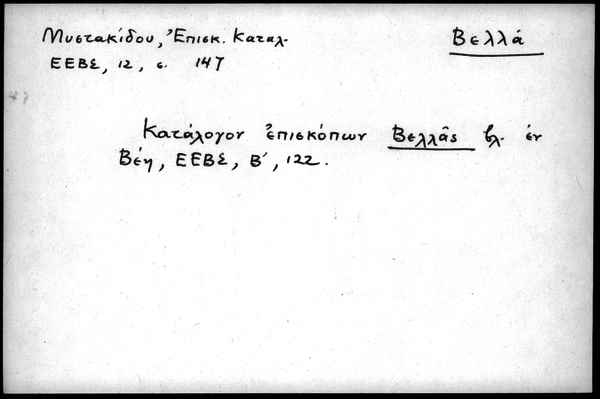 Μυστακίδου, Ἐπισκ. Καταλ.
Βελλά
ΕΕΒΣ, 12, σ. 147
Κατάλογον ἐπισκόπων Βελλᾶς βλ. ἐν
Βέη, ΕΕΒΣ, Β΄, 122.